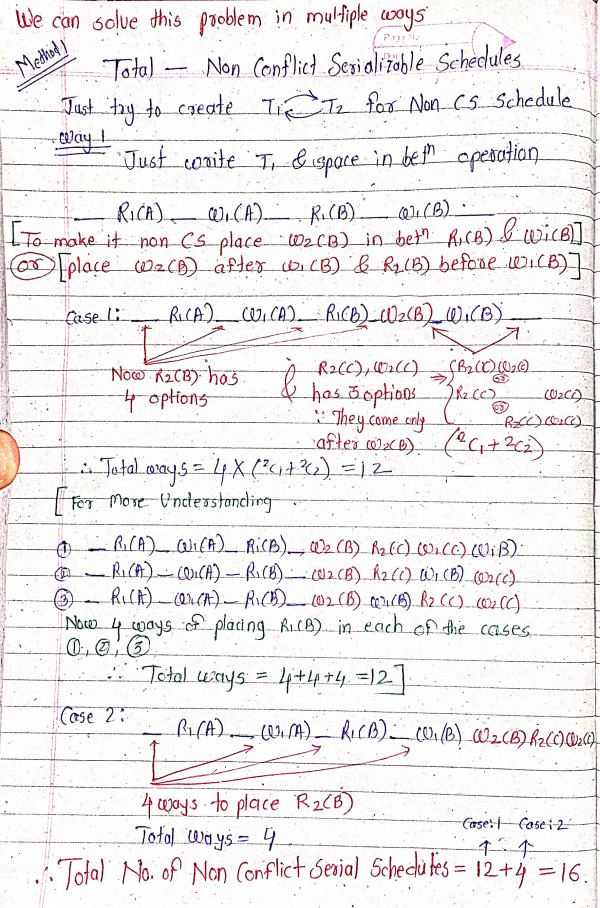 We can solve this problem in multiple ways
Method 1
Total — Non Conflict Serializable Schedules
Just try to create T1 T2 for Non CS Schedule
Way 1
Just write T1 & space in betn operation
— R1(A) — W1(A) — R1(B) — W1(B) —
[To make it non CS place W2(B) in betn R1(B) & W1(B)]
(or) [place W2(B) after W1(B) & R2(B) before W1(B)]
Case 1: — R1(A) — W1(A) — R1(B) — W2(B) — W1(B) —
Now R2(B) has
4 options
& R2(C), W2(C)
has 3 options
∵ They come only
after W2(B)
⇒ R2(C) W2(C)
or
R2(C) W2(C)
or
R2(C) W2(C)
(²C1 + ²C2)
∴ Total ways = 4 X (²C1 + ²C2) = 12
[For More Understanding
① — R1(A) — W1(A) — R1(B) — W2(B) R2(C) W2(C) W1(B)
② — R1(A) — W1(A) — R1(B) — W2(B) R2(C) W1(B) W2(C)
③ — R1(A) — W1(A) — R1(B) — W2(B) W1(B) R2(C) W2(C)
Now 4 ways of placing R1(B) in each of the cases
①, ②, ③
∴ Total ways = 4+4+4 = 12]
Case 2: — R1(A) — W1(A) — R1(B) — W1(B) W2(B) R2(C) W2(C)
4 ways to place R2(B)
Total ways = 4
Case:1 Case:2
∴ Total No. of Non Conflict Serial Schedules = 12+4 = 16.